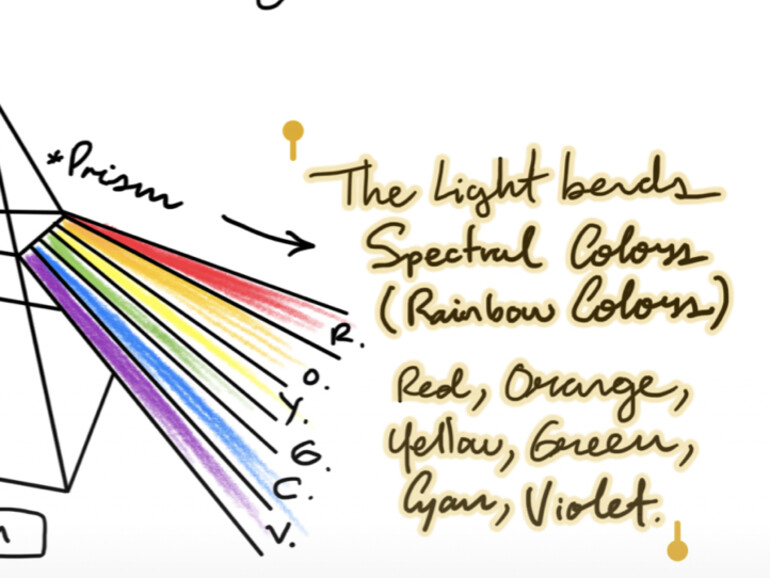 *Prism
The Light bends
Spectral Colours
(Rainbow Colours)
R.
O.
Y.
G.
C.
V.
Red, Orange,
Yellow, Green,
Cyan, Violet.